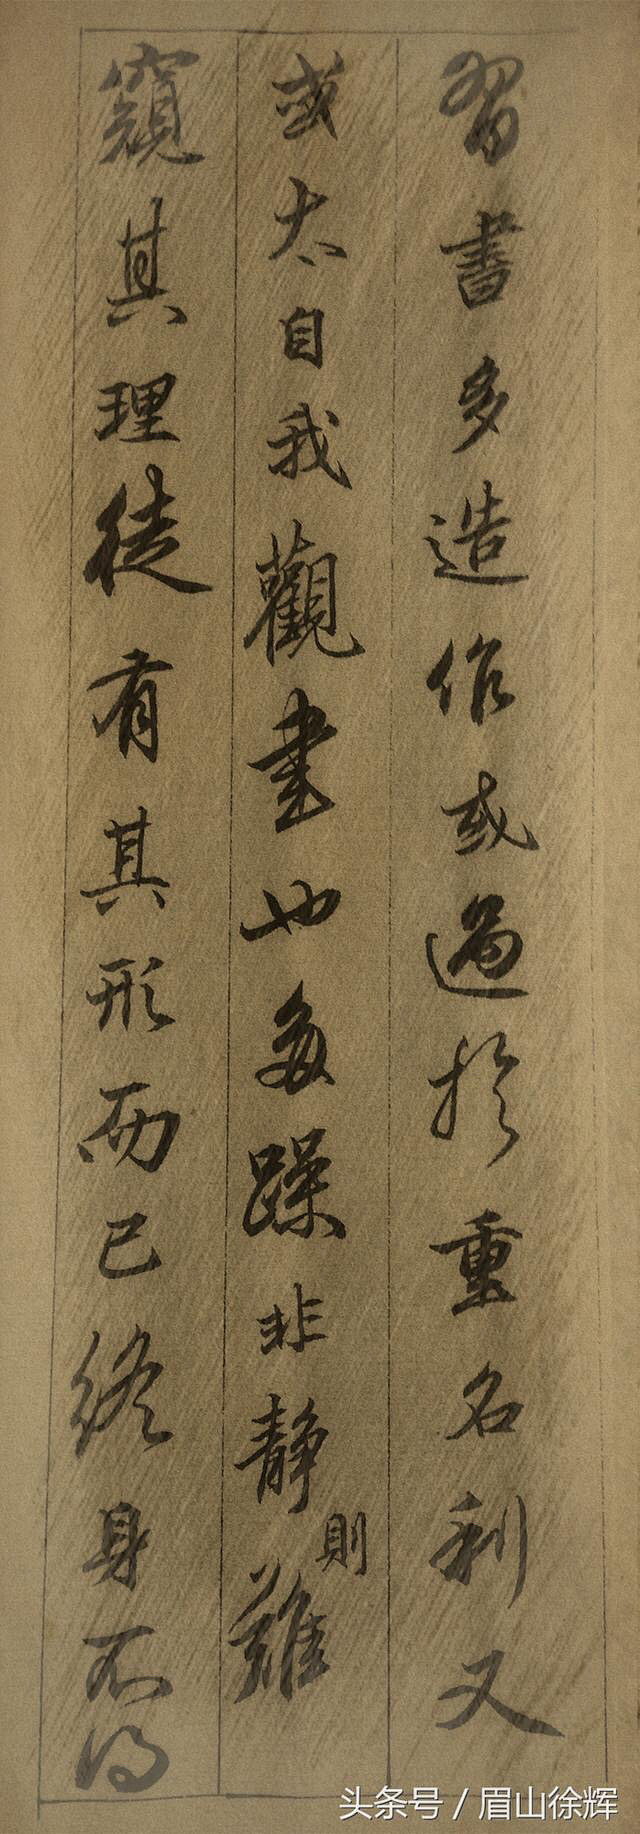 習書多造作或過於重名利又
或太自我觀書也多躁非静則難
窺其理徒有其形而已終身不得
头条号 / 眉山徐辉